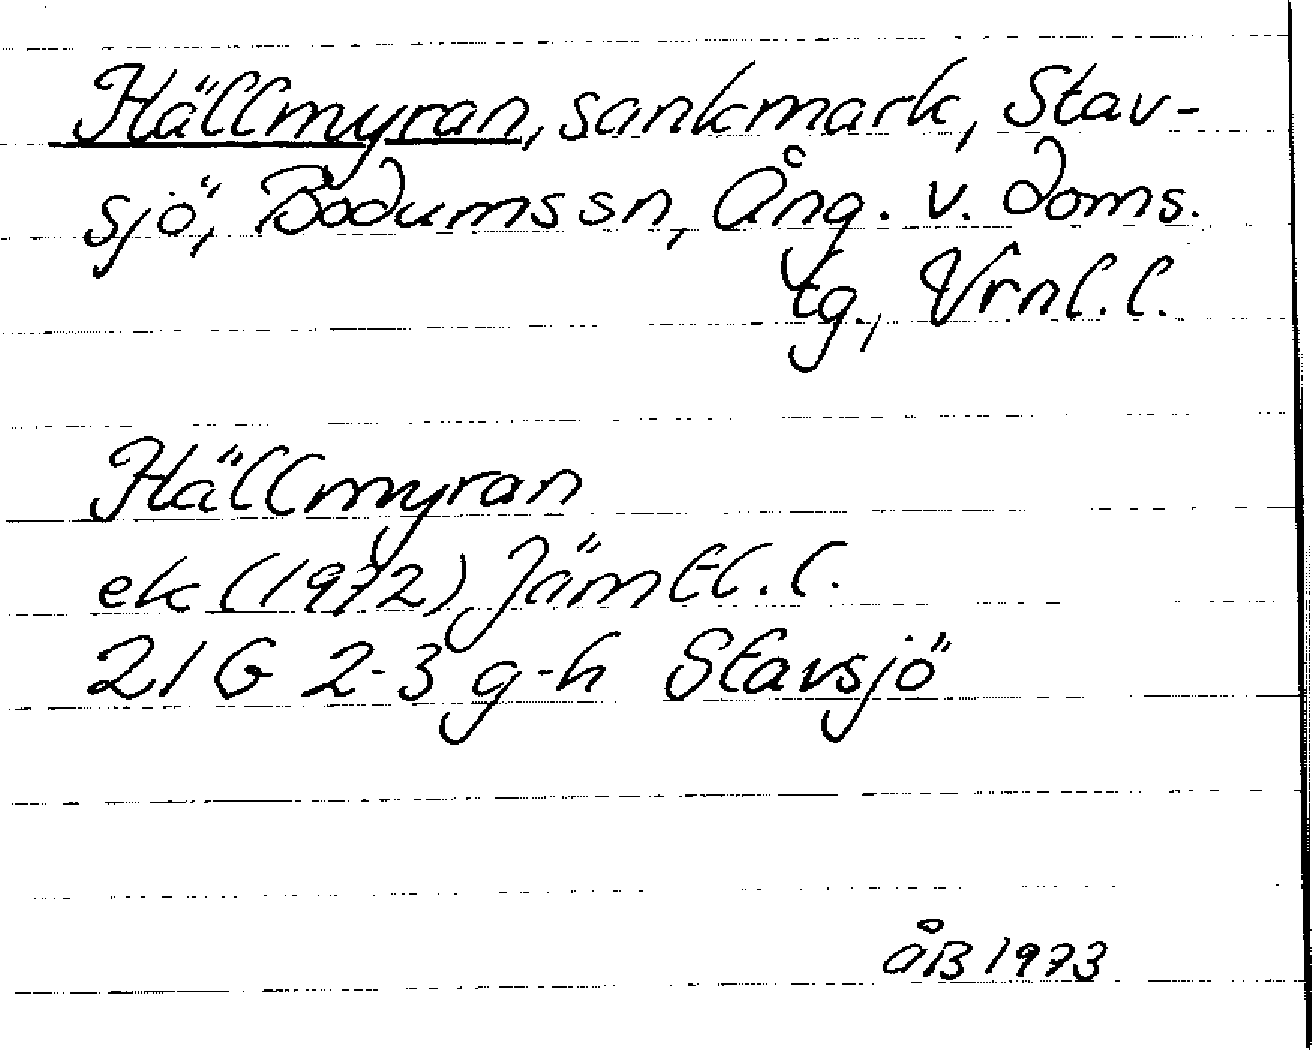 Hällmyran, sankmark, Stav-
sjö, Bodums sn, Ång. v. doms.
tg., Vrnl. l.
Hällmyran
ek (1972) Jämtl. l.
21G 2-3 g-h Stavsjö
ÅB 1973